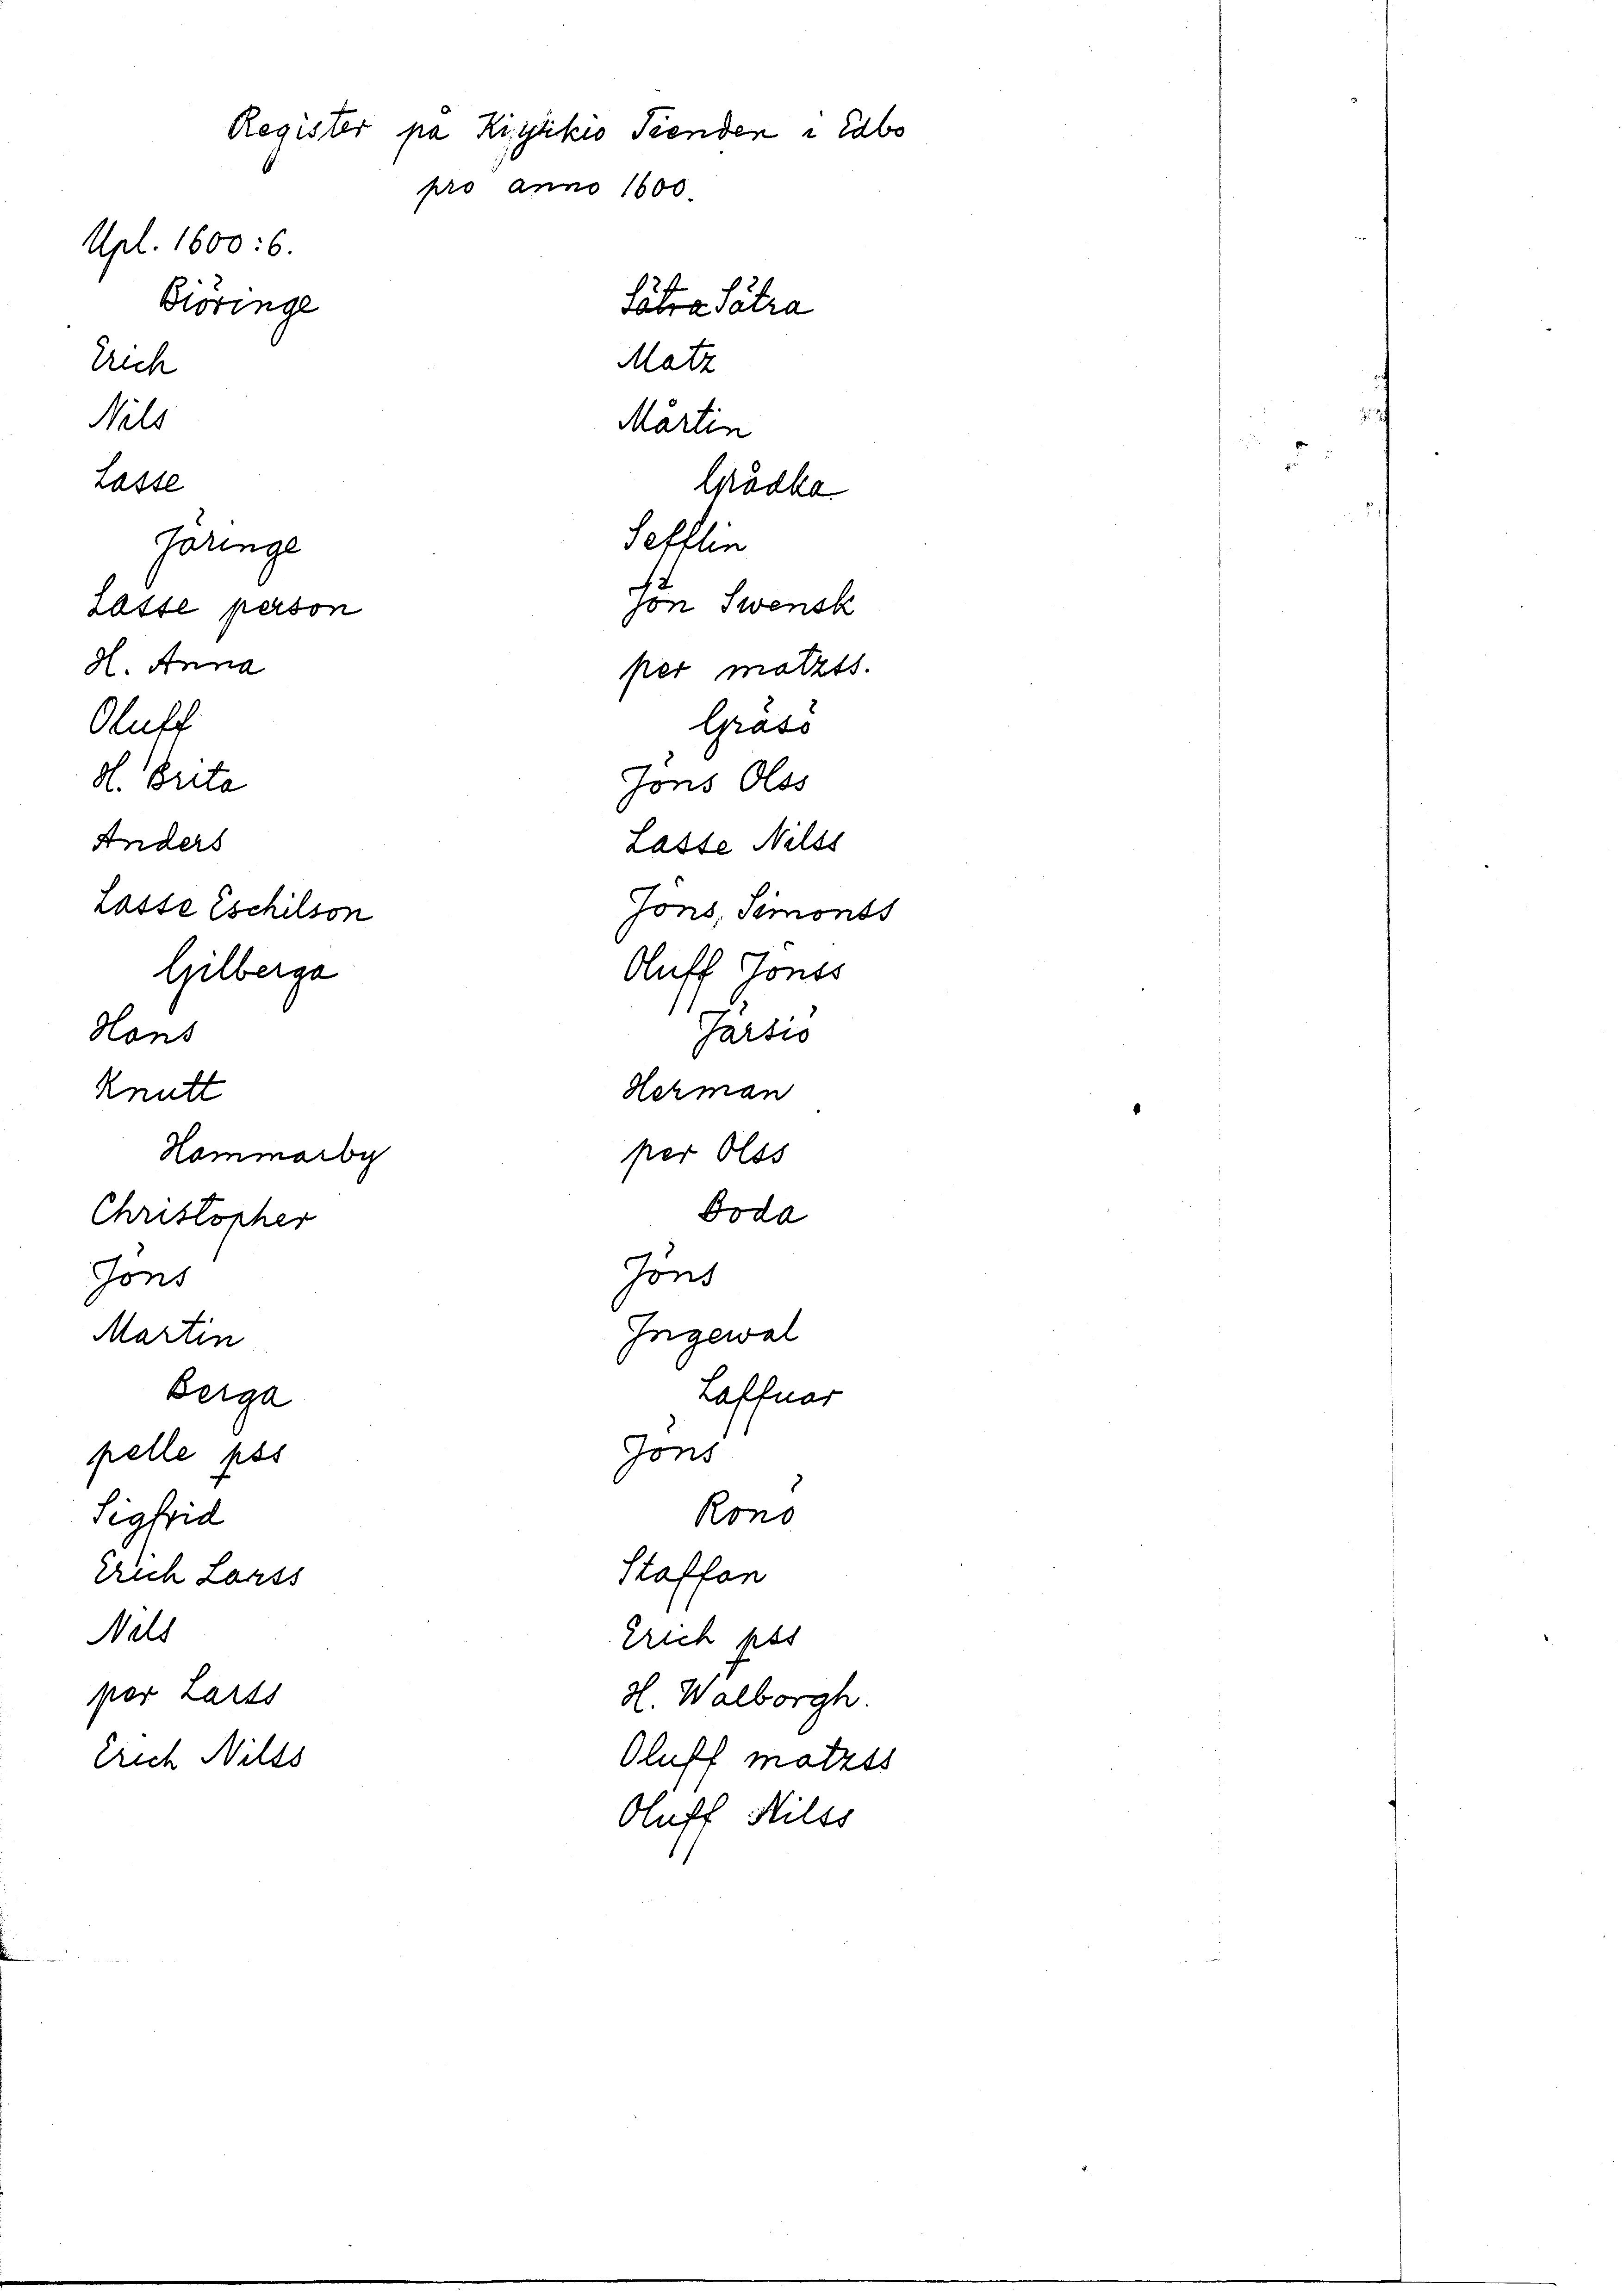 Register på Kiyrkio Tienden i Edbo
pro anno 1600.
Upl. 1600:6.
Biöringe
Erich
Nils
Lasse
Jöringe
Lasse person
H. Anna
Oluff
H. Brita
Anders
Lasse Eschilson
Gilberga
Hans
Knutt
Hammarby
Christopher
Jöns
Martin
Berga
pelle pss
Sigfrid
Erich Larss
Nils
per Larss
Erich Nilss
Sätra Sätra
Matz
Mårtin
Grådka
Sefflin
Jön Swensk
per matzss.
Gräsö
Jöns Olss
Lasse Nilss
Jöns, Simonss
Oluff Jönss
Järsiö
Herman
per Olss
Boda
Jöns
Ingewal
Laffuar
Jöns
Ronö
Staffan
Erich pss
H. Walborgh.
Oluff matzss
Oluff Nilss